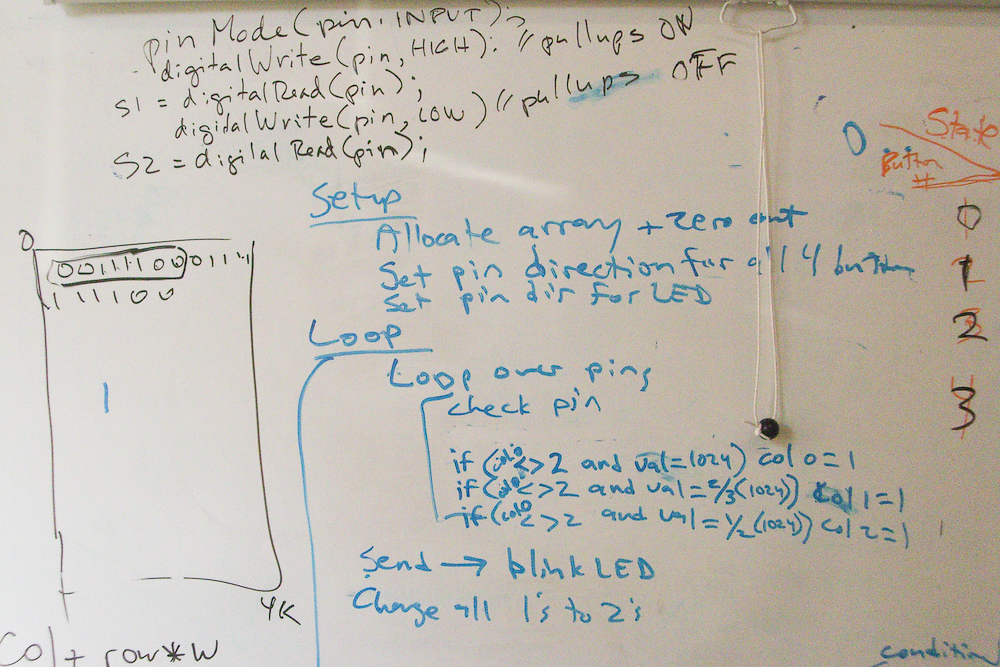 pinMode(pin, INPUT);
digitalWrite(pin, HIGH); // pullups ON
S1 = digitalRead(pin);
digitalWrite(pin, LOW) // pullups OFF
S2 = digital Read(pin);
Setup
Allocate array + zero out
Set pin direction for all 4 button
Set pin dir for LED
Loop
Loop over pins
check pin
if (col0 <> 2 and val=1024) col 0=1
if (col0 <> 2 and val=2/3(1024)) col 1=1
if (col0 <> 2 and val=1/2(1024)) col 2=1
Send → blink LED
Change all 1's to 2's
0
0011110000111
1111100
1
4K
Col + row*W
0
State
Button #
0
1
2
3
condition